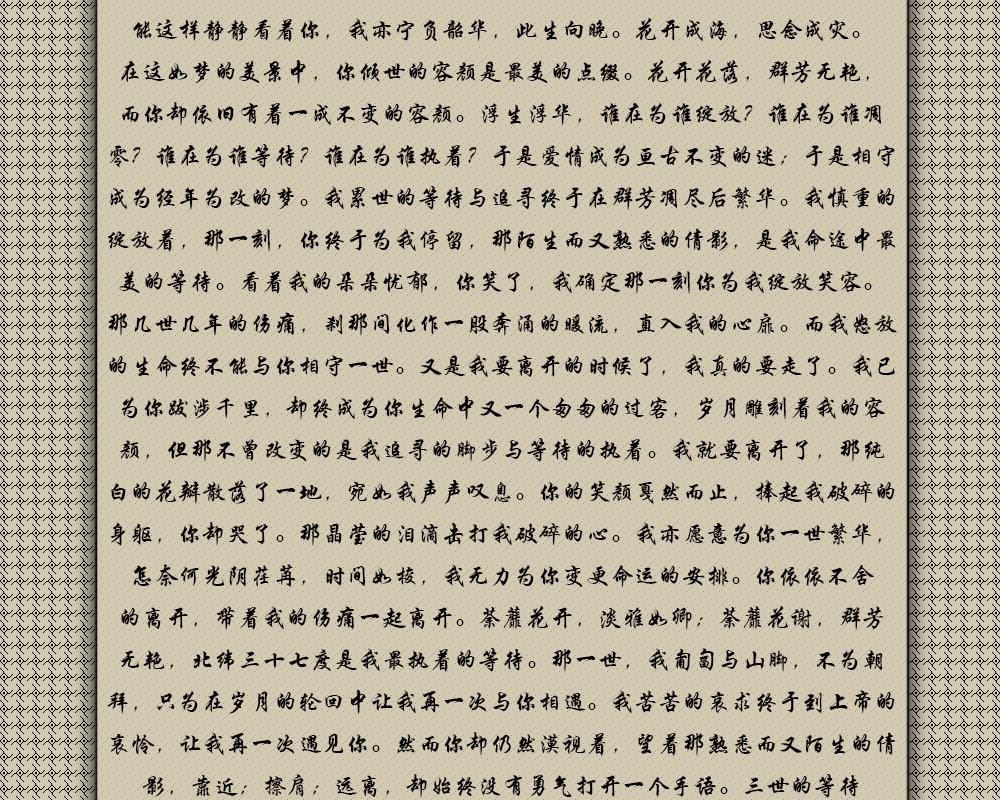 能这样静静看着你，我亦宁负韶华，此生向晚。花开成海，思念成灾。
在这如梦的美景中，你倾世的容颜是最美的点缀。花开花落，群芳无艳，
而你却依旧有着一成不变的容颜。浮生浮华，谁在为谁绽放？谁在为谁凋
零？谁在为谁等待？谁在为谁执着？于是爱情成为亘古不变的迷；于是相守
成为经年为改的梦。我累世的等待与追寻终于在群芳凋尽后繁华。我慎重的
绽放着，那一刻，你终于为我停留，那陌生而又熟悉的倩影，是我命途中最
美的等待。看着我的朵朵忧郁，你笑了，我确定那一刻你为我绽放笑容。
那几世几年的伤痛，刹那间化作一股奔涌的暖流，直入我的心扉。而我怒放
的生命终不能与你相守一世。又是我要离开的时候了，我真的要走了。我已
为你跋涉千里，却终成为你生命中又一个匆匆的过客，岁月雕刻着我的容
颜，但那不曾改变的是我追寻的脚步与等待的执着。我就要离开了，那纯
白的花瓣散落了一地，宛如我声声叹息。你的笑颜戛然而止，捧起我破碎的
身躯，你却哭了。那晶莹的泪滴击打我破碎的心。我亦愿意为你一世繁华，
怎奈何光阴荏苒，时间如梭，我无力为你变更命运的安排。你依依不舍
的离开，带着我的伤痛一起离开。荼蘼花开，淡雅如卿；荼蘼花谢，群芳
无艳，北纬三十七度是我最执着的等待。那一世，我匍匐与山脚，不为朝
拜，只为在岁月的轮回中让我再一次与你相遇。我苦苦的哀求终于到上帝的
哀怜，让我再一次遇见你。然而你却仍然漠视着，望着那熟悉而又陌生的倩
影，靠近；擦肩；远离，却始终没有勇气打开一个手语。三世的等待